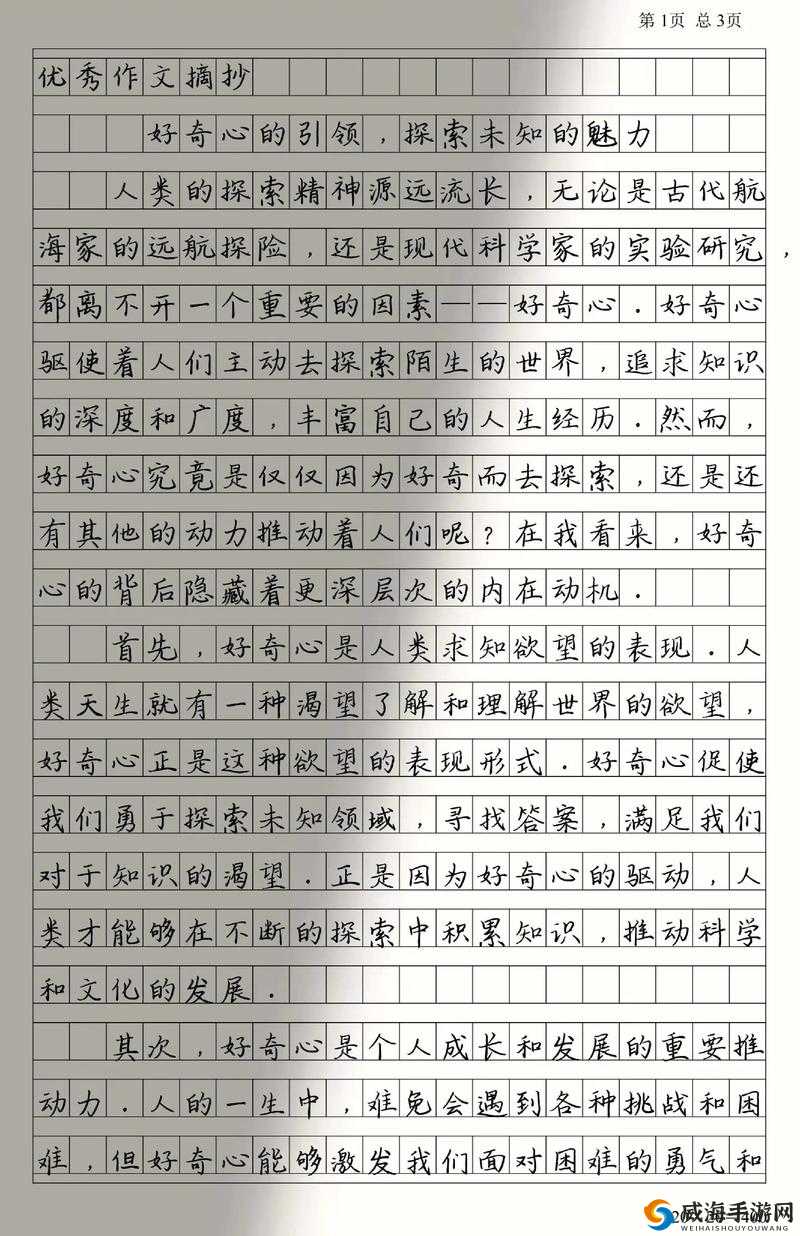 第1页 总3页
优秀作文摘抄
好奇心的引领，探索未知的魅力
人类的探索精神源远流长，无论是古代航
海家的远航探险，还是现代科学家的实验研究，
都离不开一个重要的因素——好奇心．好奇心
驱使着人们主动去探索陌生的世界，追求知识
的深度和广度，丰富自己的人生经历．然而，
好奇心究竟是仅仅因为好奇而去探索，还是还
有其他的动力推动着人们呢？在我看来，好奇
心的背后隐藏着更深层次的内在动机．
首先，好奇心是人类求知欲望的表现．人
类天生就有一种渴望了解和理解世界的欲望，
好奇心正是这种欲望的表现形式．好奇心促使
我们勇于探索未知领域，寻找答案，满足我们
对于知识的渴望．正是因为好奇心的驱动，人
类才能够在不断的探索中积累知识，推动科学
和文化的发展．
其次，好奇心是个人成长和发展的重要推
动力．人的一生中，难免会遇到各种挑战和困
难，但好奇心能够激发我们面对困难的勇气和
威海手游网
WEIHAISHOUYOUWANG